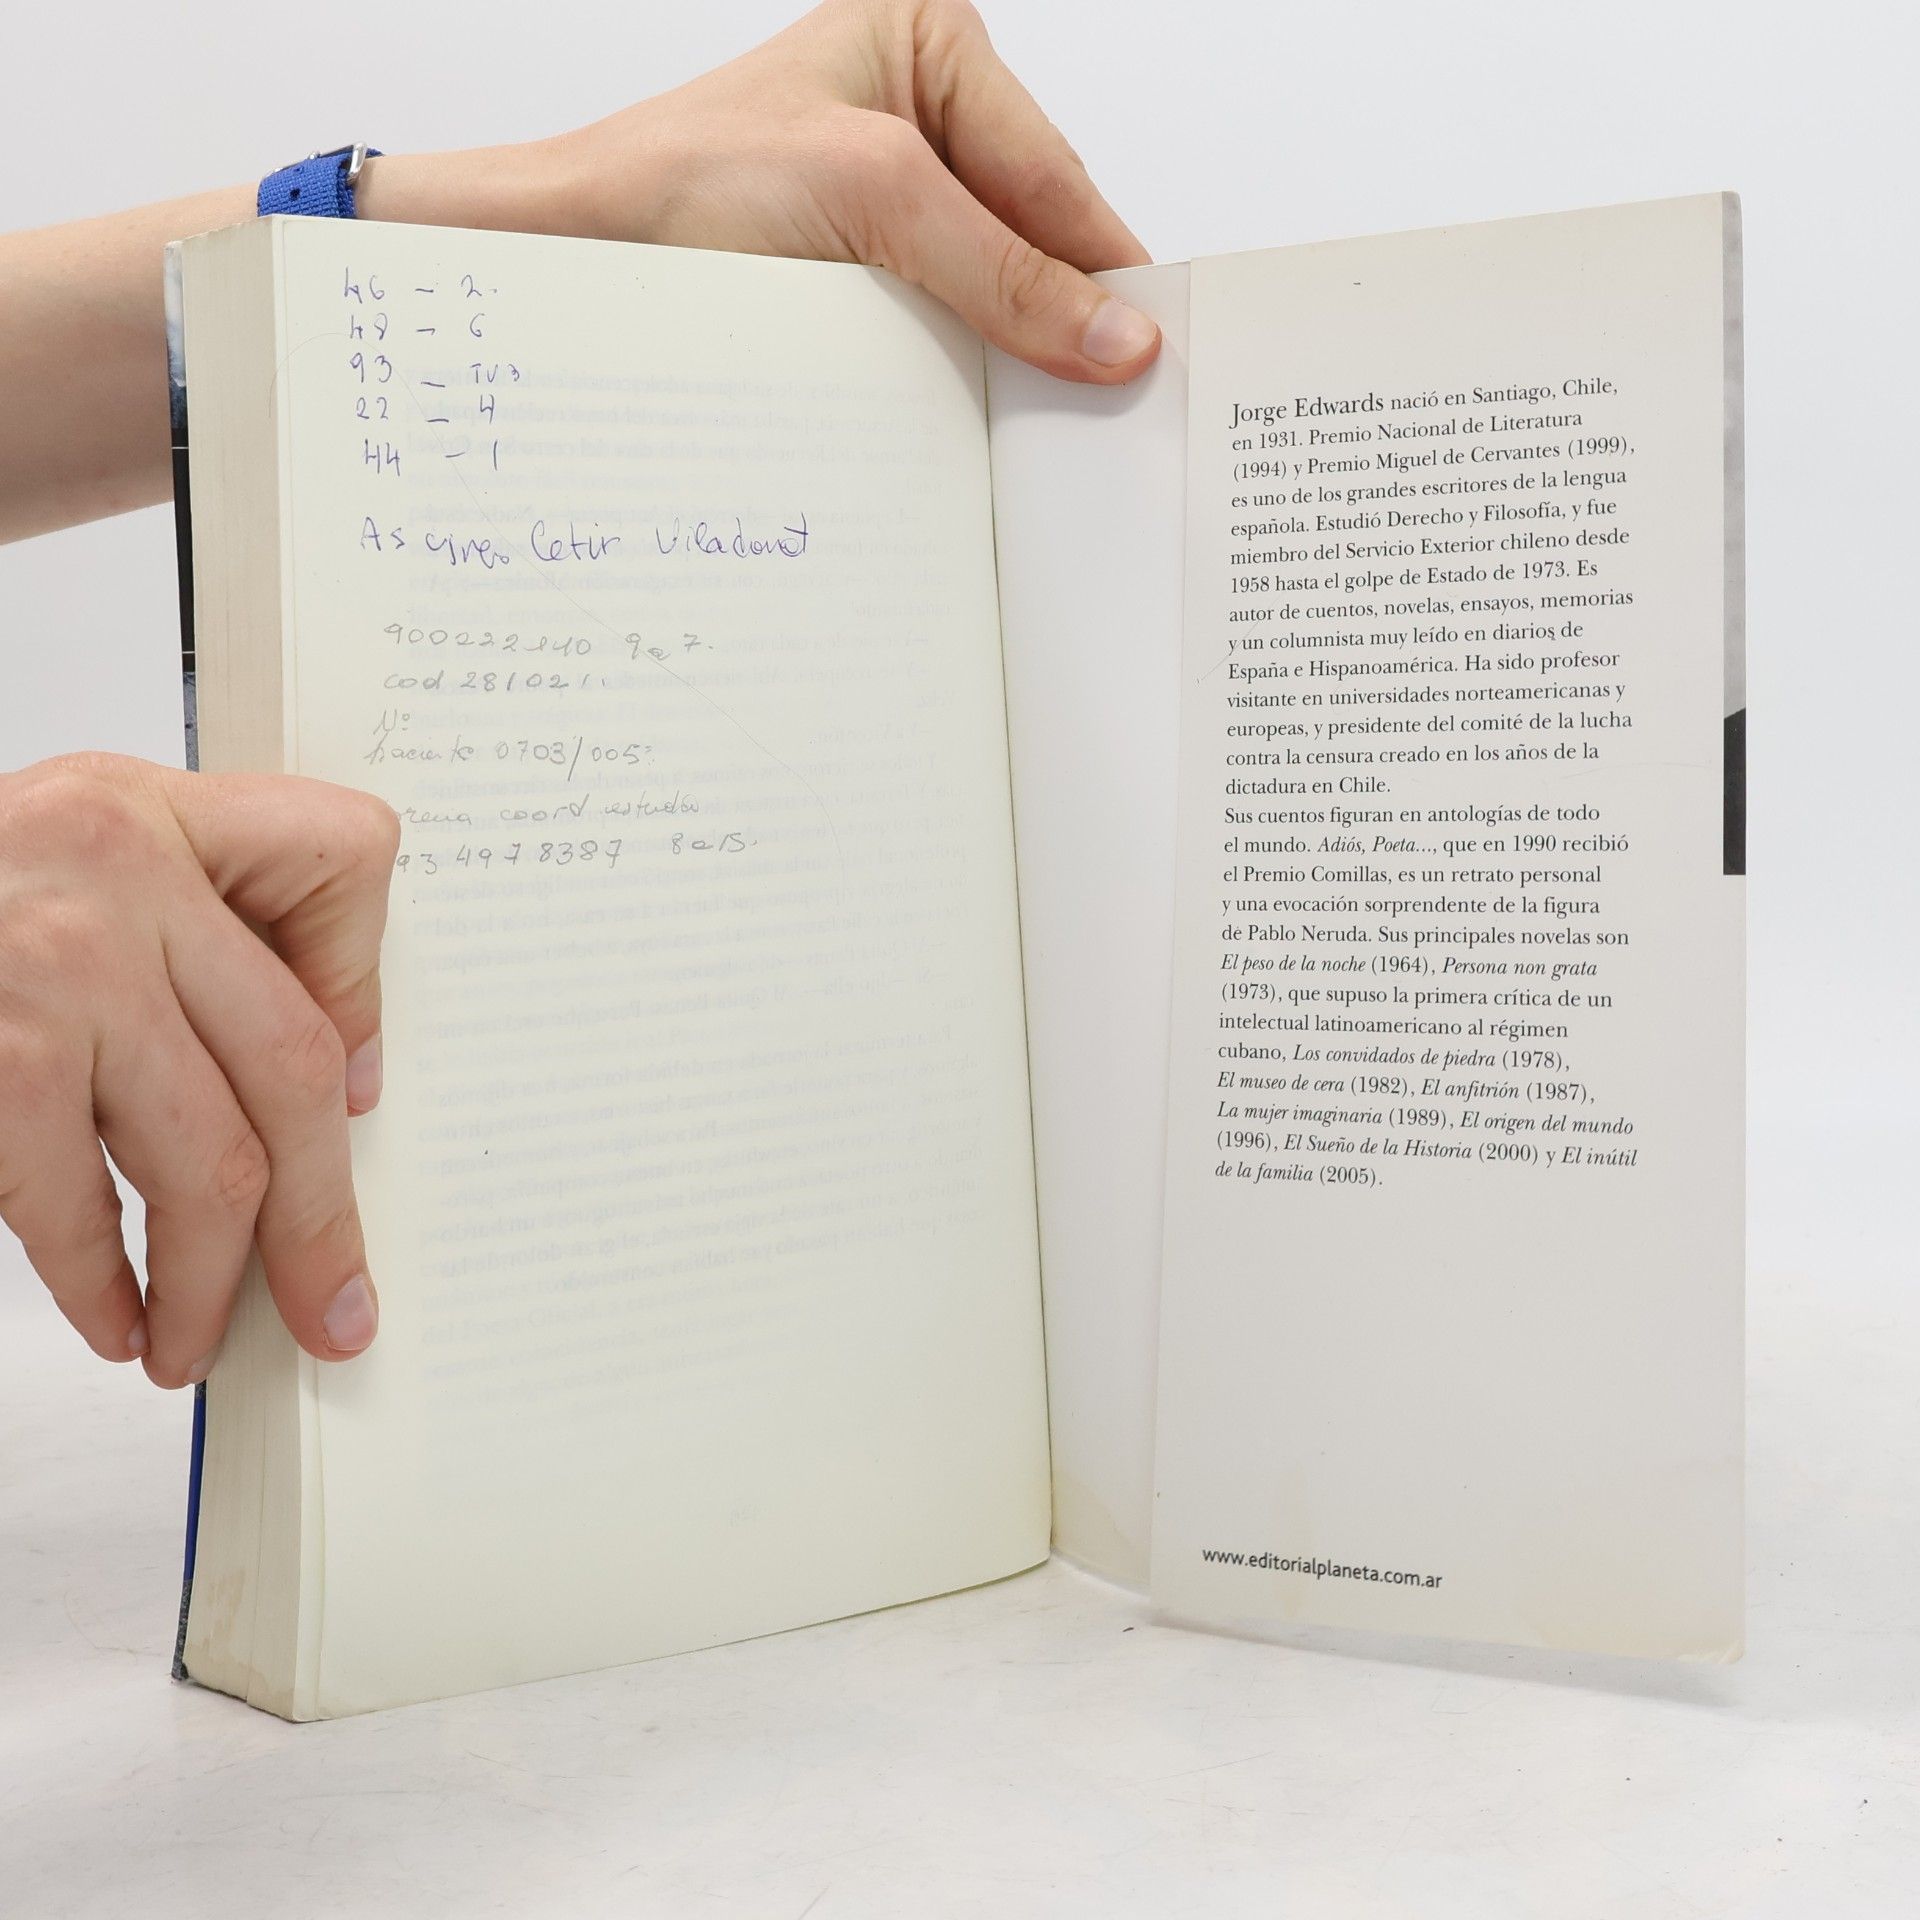 46 - 2.
48 - 6
93 - TV3
22 - 4
44 - 1
Cetir Viladomat
900222140 9 a 7.
cod 281021
Nº
paciente 0703/005
coord estudio
93 497 8387 8 a 15.
Jorge Edwards nació en Santiago, Chile,
en 1931. Premio Nacional de Literatura
(1994) y Premio Miguel de Cervantes (1999),
es uno de los grandes escritores de la lengua
española. Estudió Derecho y Filosofía, y fue
miembro del Servicio Exterior chileno desde
1958 hasta el golpe de Estado de 1973. Es
autor de cuentos, novelas, ensayos, memorias
y un columnista muy leído en diarios de
España e Hispanoamérica. Ha sido profesor
visitante en universidades norteamericanas y
europeas, y presidente del comité de la lucha
contra la censura creado en los años de la
dictadura en Chile.
Sus cuentos figuran en antologías de todo
el mundo. Adiós, Poeta..., que en 1990 recibió
el Premio Comillas, es un retrato personal
y una evocación sorprendente de la figura
de Pablo Neruda. Sus principales novelas son
El peso de la noche (1964), Persona non grata
(1973), que supuso la primera crítica de un
intelectual latinoamericano al régimen
cubano, Los convidados de piedra (1978),
El museo de cera (1982), El anfitrión (1987),
La mujer imaginaria (1989), El origen del mundo
(1996), El Sueño de la Historia (2000) y El inútil
de la familia (2005).
www.editorialplaneta.com.ar